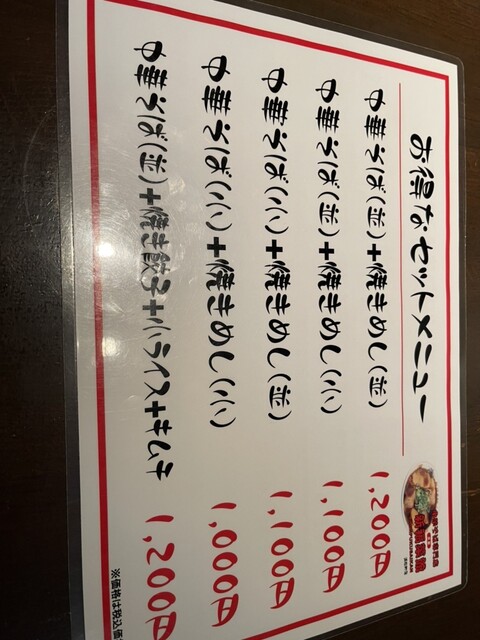 お得なセットメニュー
中華そば(並)+焼きめし(並) 1,200円
中華そば(並)+焼きめし(小) 1,100円
中華そば(小)+焼きめし(並) 1,100円
中華そば(小)+焼きめし(小) 1,000円
中華そば(並)+焼き餃子+小ライス+キムチ 1,200円
※価格は税込